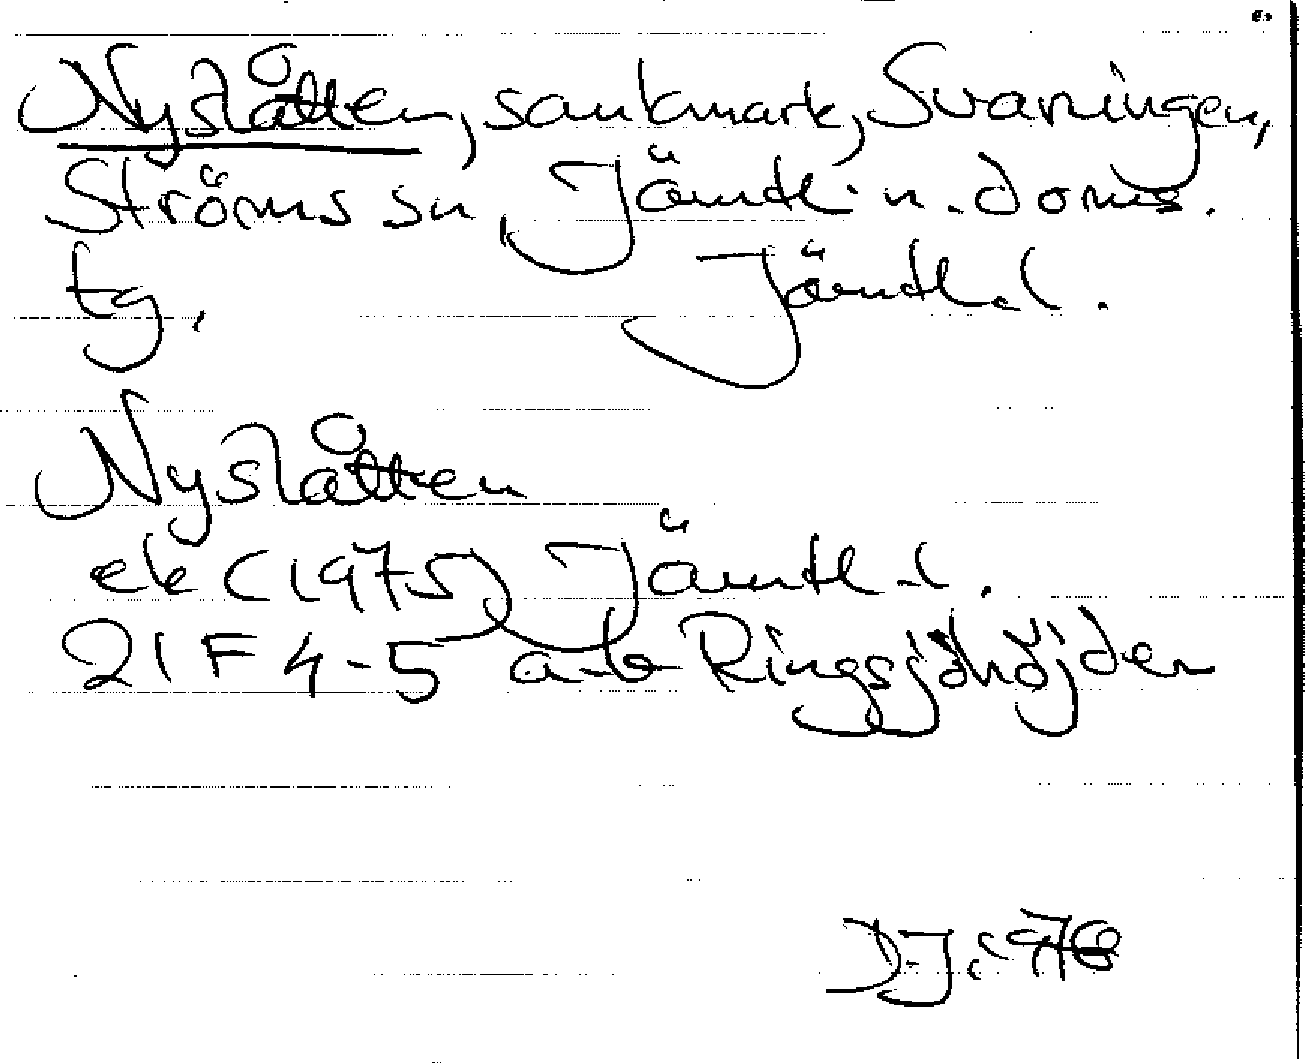 Nyslåtten, sankmark, Svaningen,
Ströms sn, Jämtl. n. doms.
tg, Jämtl. l.
Nyslåtten
ek (1975) Jämtl. l.
21 F 4-5 a-b Ringsjöhöjden
D.J. 1976